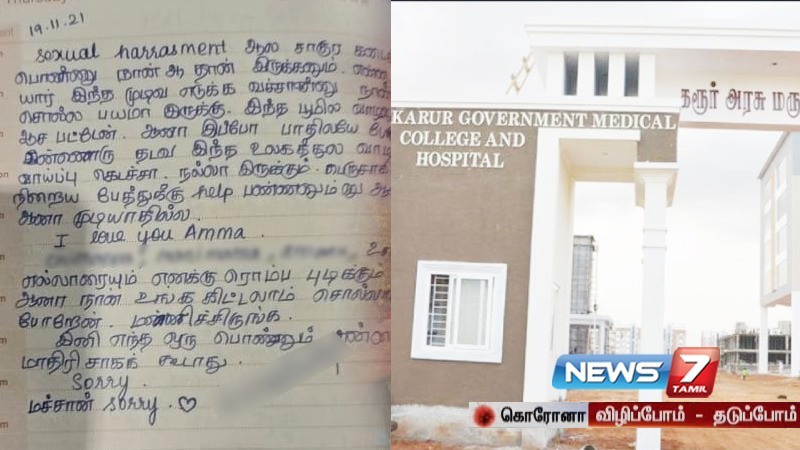 19.11.21
sexual harrasment ஆல சாகுற
பொண்ணு நான் ஆ தான் இருக்கணும். என்ன
யார் இந்த முடிவ எடுக்க வச்சான்னு
சொல்ல பயமா இருக்கு. இந்த பூமில
ஆச பட்டேன். ஆனா இப்போ பாதிலயே
இன்னொரு தடவ இந்த உலகத்துல
வாய்ப்பு கெடச்சா. நல்லா இருக்கும்.
நிறைய பேத்துக்கு help பண்ணனும் னு
ஆனா முடியாதில்ல.
I love you Amma.
எல்லாரையும் எனக்கு ரொம்ப புடிக்கும்
ஆனா நான் உங்க கிட்டலாம்
போறேன். மன்னிச்சிருங்க.
இனி எந்த ஒரு பொண்ணும்
மாதிரி சாகக் கூடாது.
Sorry.
மச்சான் sorry. ♡
KARUR GOVERNMENT MEDICAL
COLLEGE AND
HOSPITAL
கரூர் அரசு
NEWS 7
TAMIL
கொரோனா விழிப்போம் - தடுப்போம்